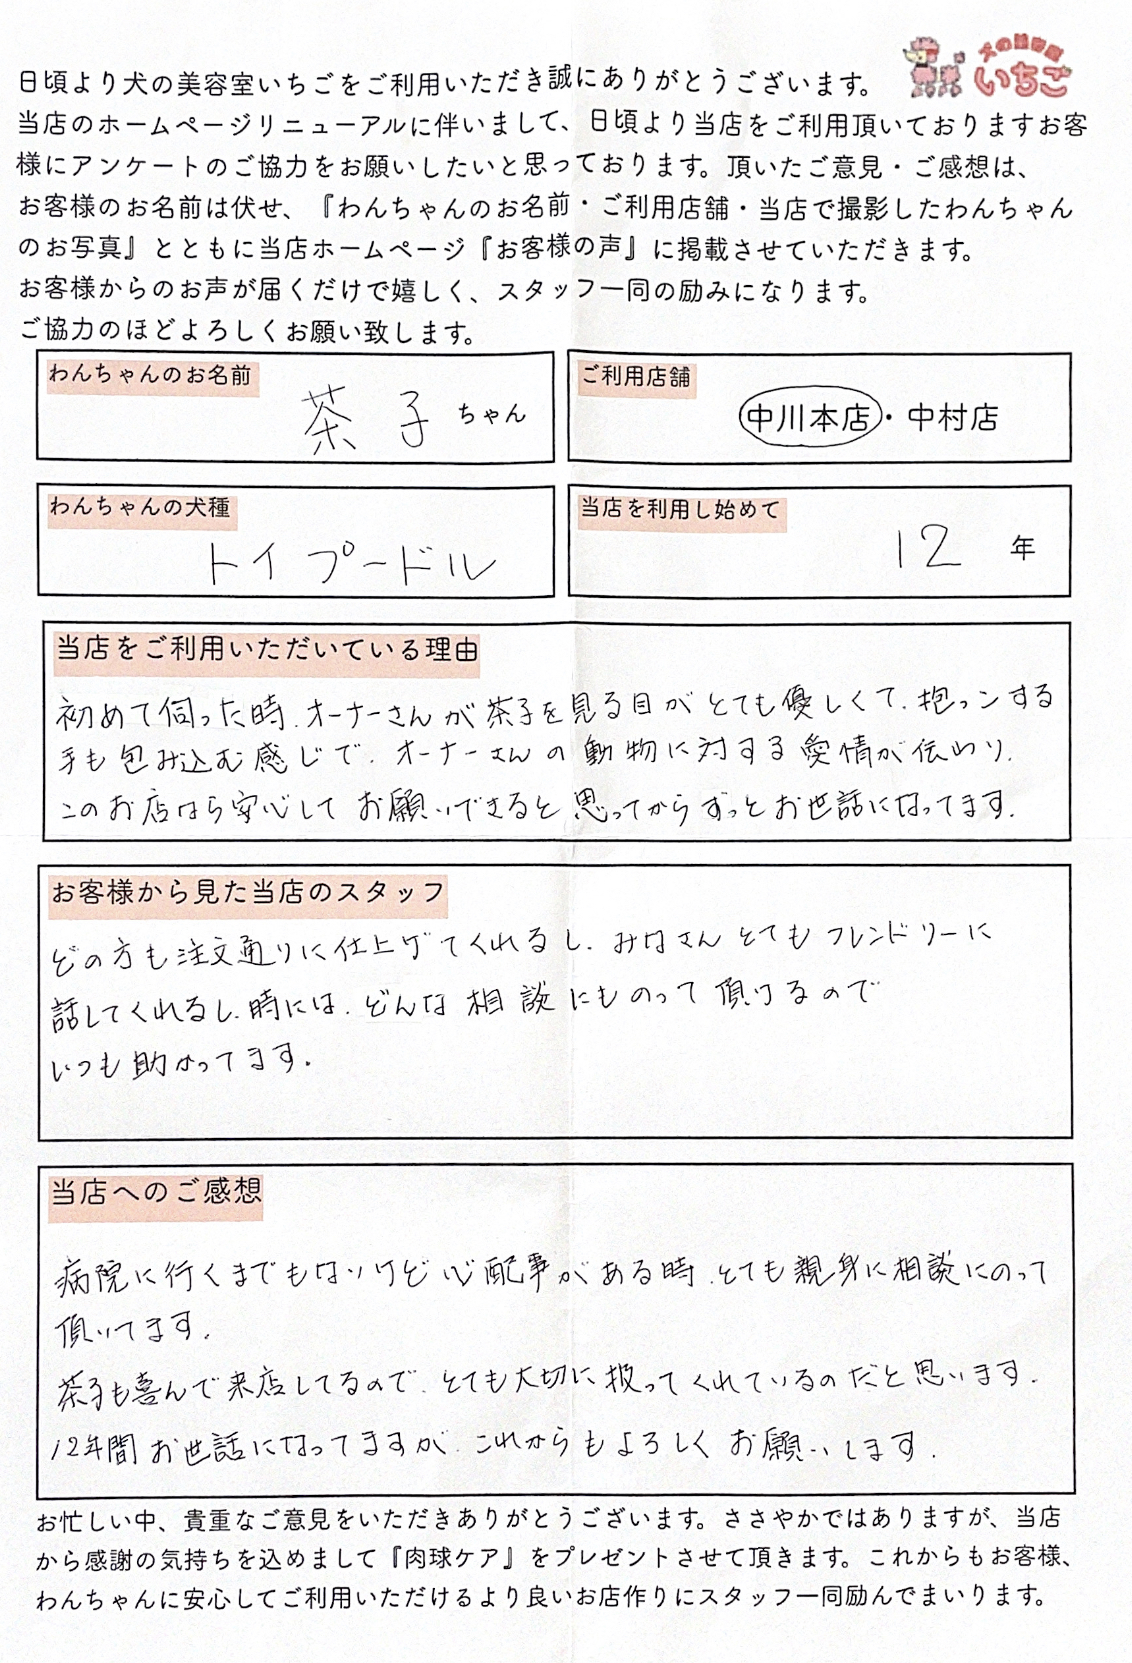 犬の美容室
いちご
日頃より犬の美容室いちごをご利用いただき誠にありがとうございます。
当店のホームページリニューアルに伴いまして、日頃より当店をご利用頂いておりますお客
様にアンケートのご協力をお願いしたいと思っております。頂いたご意見・ご感想は、
お客様のお名前は伏せ、『わんちゃんのお名前・ご利用店舗・当店で撮影したわんちゃん
のお写真』とともに当店ホームページ『お客様の声』に掲載させていただきます。
お客様からのお声が届くだけで嬉しく、スタッフ一同の励みになります。
ご協力のほどよろしくお願い致します。
わんちゃんのお名前
茶子ちゃん
ご利用店舗
中川本店・中村店
わんちゃんの犬種
トイプードル
当店を利用し始めて
12 年
当店をご利用いただいている理由
初めて伺った時、オーナーさんが茶子を見る目がとても優しくて、抱っこする
手も包み込む感じで、オーナーさんの動物に対する愛情が伝わり、
このお店なら安心してお願いできると思ってからずっとお世話になってます。
お客様から見た当店のスタッフ
どの方も注文通りに仕上げてくれるし、みなさんとてもフレンドリーに
話してくれるし、時には、どんな相談にものって頂けるので
いつも助かってます。
当店へのご感想
病院に行くまでもないけど心配事がある時、とても親身に相談にのって
頂いてます。
茶子も喜んで来店してるので、とても大切に扱ってくれているのだと思います。
12年間お世話になってますが、これからもよろしくお願いします。
お忙しい中、貴重なご意見をいただきありがとうございます。ささやかではありますが、当店
から感謝の気持ちを込めまして『肉球ケア』をプレゼントさせて頂きます。これからもお客様、
わんちゃんに安心してご利用いただけるより良いお店作りにスタッフ一同励んでまいります。